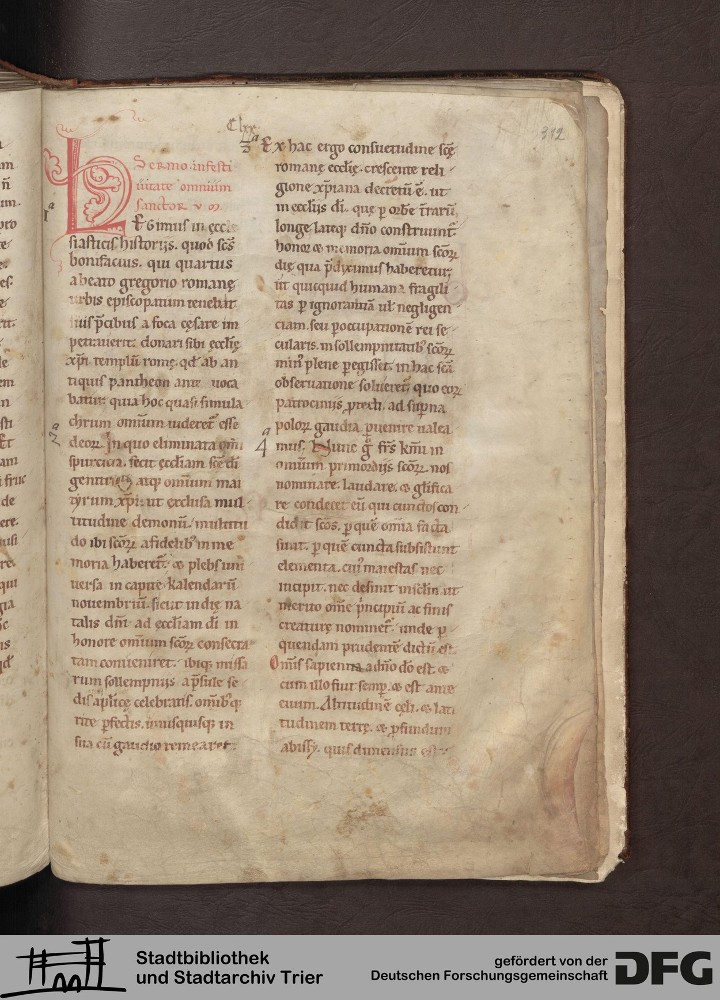 Clxx
312
Sermo in festi
uitate omnium
sanctor
LEGimus in ęccle
siasticis historijs. quod scs̄
bonifacius. qui quartus
a beato gregorio romanę
urbis episcopatum tenebat.
suis p̄cibus a foca cęsare im
petrauerit. donari sibi ęcclię
xp̄i templū romę. qd̄ ab an
tiquis pantheon ante uoca
batur. quia hoc quasi simula
chrum omnium uideretᷣ esse
deoꝝ. In quo eliminata om̄i
spurcicia. fecit ęccliam scę di
genitricis atqꝫ omnium mar
tyrum xp̄i. ut exclusa mul
titudine demonū. multitu
do ibi scōꝝ a fidelibꝰ in me
moria haberetᷣ. & plebs uni
uersa in capite kalendarū
nouembriū. sicut in die na
talis dn̄i ad ęccliam di in
honore omnium scōꝝ consecra
tam conueniret. ibiqꝫ missa
rum sollempnijs a p̄sule se
dis aplicę celebratis. omibꝰqꝫ
rite ꝑfectis. unusquisqꝫ in
sua cū gaudio remearet.
3ᵃ Ex hac ergo consuetudine scę
romanę ecclię. crescente reli
gione xp̄iana decretū ē. ut
in ecclijs di. que ꝑ orbē t̄rarū
longe lateqꝫ dn̄o construuntᷣ
honor & memoria omnium scōꝝ
die qua p̄diximus haberetur.
ut quicquid humana fragili
tas ꝑ ignorantiā ul̄ negligen
ciam. seu ꝑ occupationē rei se
cularis. in sollempnitatibꝰ scōꝝ
minꝰ plene ꝑegisset. in hac scā
obseruatione solueretᷣ. quo eoꝝ
patrociniis ꝓtecti. ad sup̄na
poloꝝ gaudia ꝑuenire ualea
4ᵃ mus. Nunc g̊ frs̄ km̄i in
omnium primordijs scōꝝ. nos
nominare. laudare. & glifica
re condecet eū qui cunctos con
didit scōs. ꝑ quē omnia facta
sunt. ꝑ quē cuncta subsistunt
elementa. cuiꝰ maiestas nec
incipit. nec desinit in sclm. ut
merito ome p̄ncipiū ac finis
creaturę nominetᷣ. unde ꝑ
quendam prudentē dictū est.
Omis sapientia a dn̄o dō est. &
cum illo fuit semꝑ. & est ante
euum. Altitudinē cęli. & lati
tudinem terrę. & ꝓfundum
abissi. quis dimensus est.
1ᵃ
2ᵃ
Stadtbibliothek
und Stadtarchiv Trier
gefördert von der
Deutschen Forschungsgemeinschaft
DFG